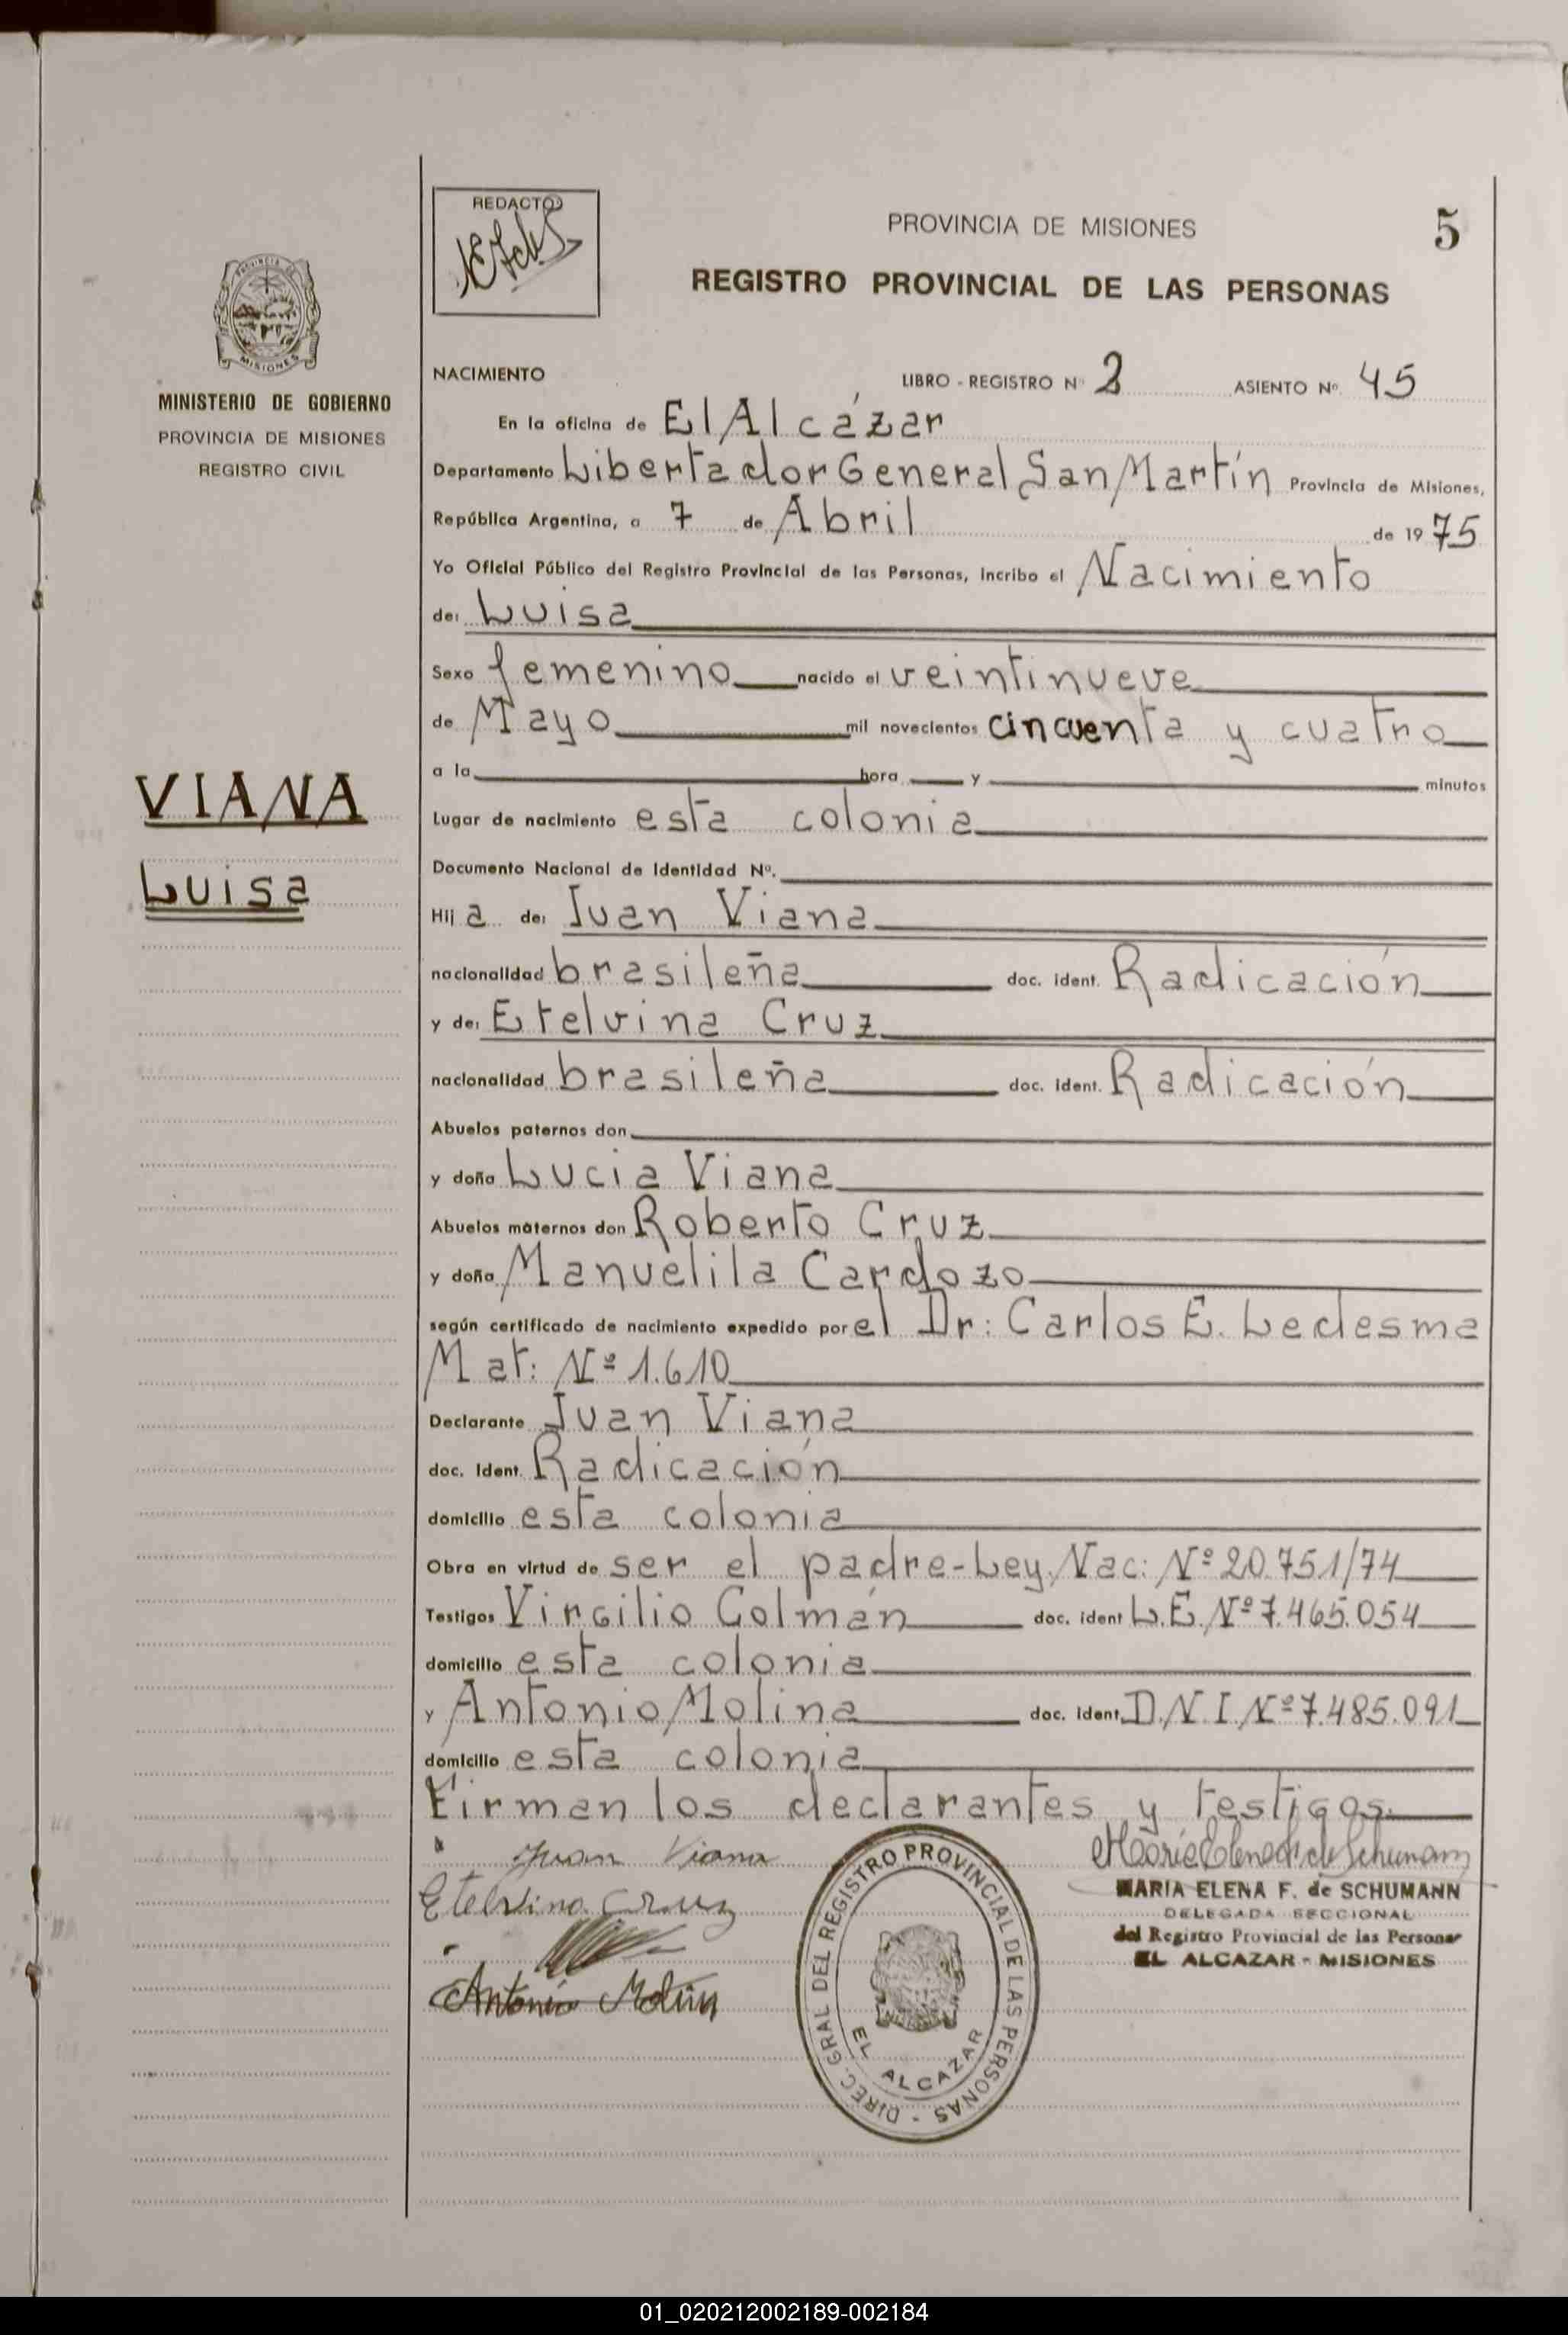 REDACTO
PROVINCIA DE MISIONES
5
REGISTRO PROVINCIAL DE LAS PERSONAS
PROVINCIA DE
MISIONES
MINISTERIO DE GOBIERNO
PROVINCIA DE MISIONES
REGISTRO CIVIL
VIANA
Luisa
NACIMIENTO LIBRO - REGISTRO Nº 2 ASIENTO Nº 45
En la oficina de El Alcázar
Departamento Libertador General San Martín Provincia de Misiones,
República Argentina, a 7 de Abril de 1975
Yo Oficial Público del Registro Provincial de las Personas, incribo el Nacimiento
de: Luisa
Sexo femenino nacido el veintinueve
de Mayo mil novecientos cincuenta y cuatro
a la hora y minutos
Lugar de nacimiento esta colonia
Documento Nacional de Identidad Nº.
Hija de: Juan Viana
nacionalidad brasileña doc. ident. Radicación
y de: Etelvina Cruz
nacionalidad brasileña doc. ident. Radicación
Abuelos paternos don
y doña Lucia Viana
Abuelos maternos don Roberto Cruz
y doña Manuelila Cardozo
según certificado de nacimiento expedido por el Dr: Carlos E. Ledesma
Mat: Nº 1.610
Declarante Juan Viana
doc. ident. Radicación
domicilio esta colonia
Obra en virtud de ser el padre-Ley. Nac: Nº 20.751/74
Testigos Virgilio Colmán doc. ident L.E. Nº 7.465.054
domicilio esta colonia
y Antonio Molina doc. ident. D.N.I. Nº 7.485.091
domicilio esta colonia
Firman los declarantes y testigos.
Juan Viana
Etelvina Cruz
Antonio Molin
DIREC. GRAL DEL REGISTRO PROVINCIAL DE LAS PERSONAS -
EL ALCAZAR
María Elena F. de Schumann
MARIA ELENA F. de SCHUMANN
DELEGADA SECCIONAL
del Registro Provincial de las Personas
EL ALCAZAR - MISIONES
01_020212002189-002184